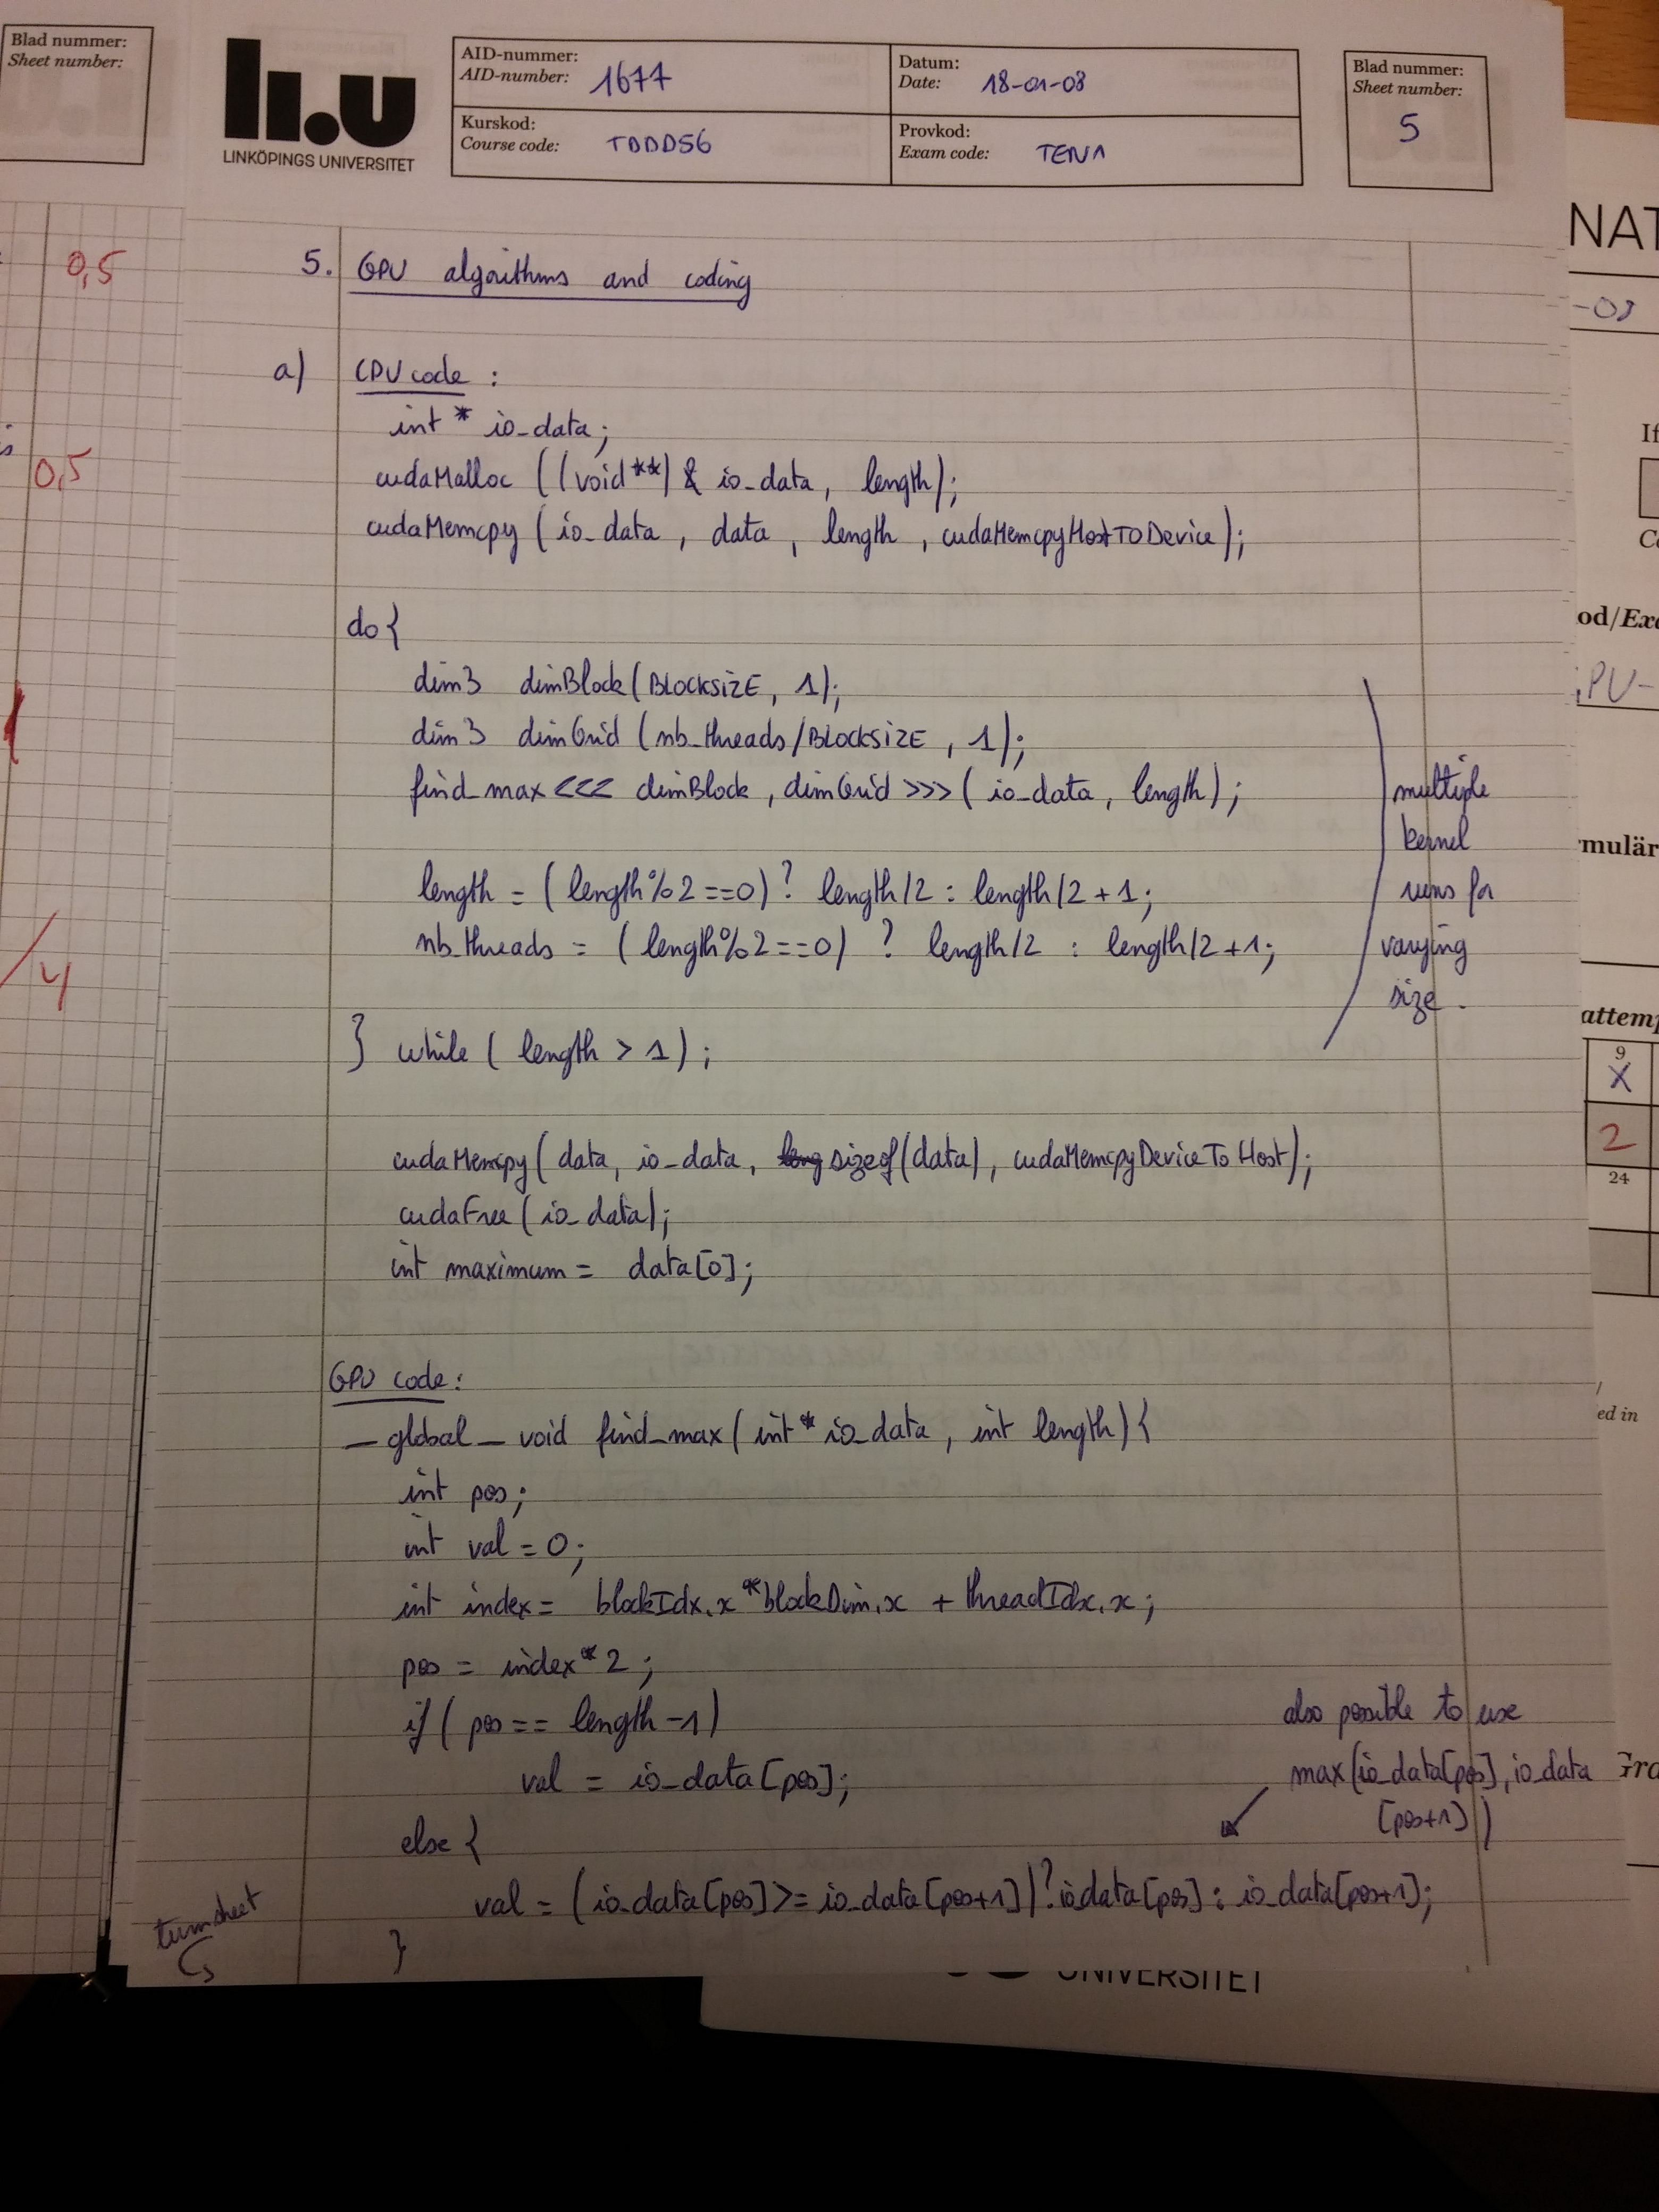 Blad nummer:
Sheet number:
0,5
0,5
1
/4
LINKÖPINGS UNIVERSITET
AID-nummer:
AID-number: 1677
Datum:
Date: 18-01-08
Kurskod:
Course code: TDDD56
Provkod:
Exam code: TEN1
Blad nummer:
Sheet number:
5
5. GPU algorithms and coding
a) CPU code :
int * io_data;
cudaMalloc ((void**) & io_data, length);
cudaMemcpy (io_data, data, length, cudaMemcpyHostToDevice);
do {
dim3 dimBlock(BLOCKSIZE, 1);
dim3 dimGrid (nb_threads/BLOCKSIZE, 1);
find_max <<< dimBlock, dimGrid >>> (io_data, length);
length = (length%2==0)? length/2 : length/2 + 1;
nb_threads = (length%2==0) ? length/2 : length/2+1;
} while (length > 1);
multiple
kernel
runs for
varying
size.
cudaMemcpy(data, io_data, sizeof(data), cudaMemcpyDeviceToHost);
cudaFree(io_data);
int maximum = data[0];
GPU code:
_global_ void find_max(int* io_data, int length){
int pos;
int val = 0;
int index = blockIdx.x*blockDim.x + threadIdx.x;
pos = index*2;
if (pos == length-1)
val = io_data[pos];
else {
also possible to use
max(io_data[pos], io_data
[pos+1])
val = (io_data[pos]>= io_data[pos+1])?io_data[pos]: io_data[pos+1];
}
turn sheet
UNIVERSITET
NAT
-08
If
od/Exa
PU-
mulär
attemp
9
X
2
24
ed in
Gra